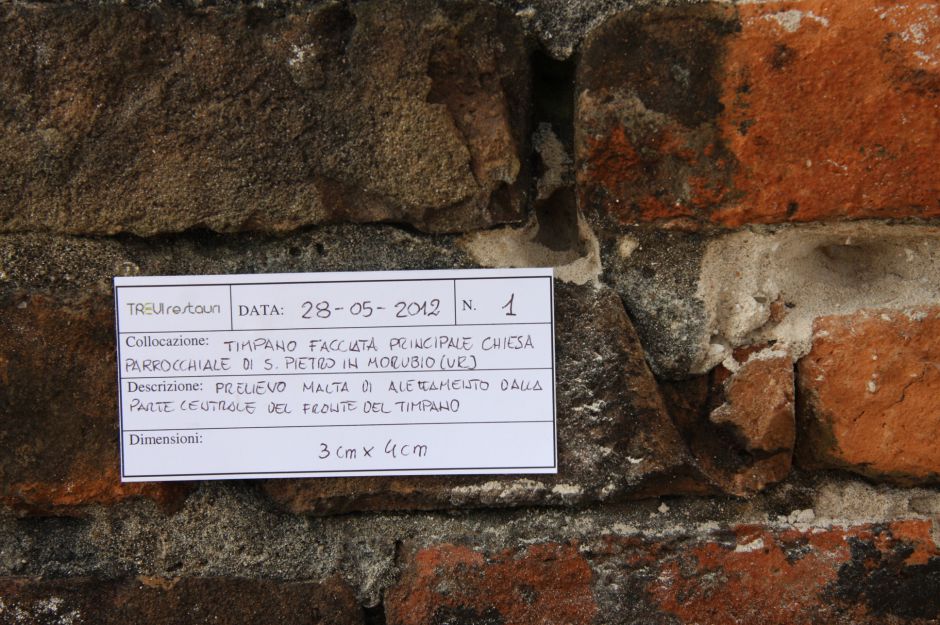 TREVIrestauri DATA: 28-05-2012 N. 1
Collocazione: TIMPANO FACCIATA PRINCIPALE CHIESA
PARROCCHIALE DI S. PIETRO IN MORUBIO (VR)
Descrizione: PRELIEVO MALTA DI ALETTAMENTO DALLA
PARTE CENTRALE DEL FRONTE DEL TIMPANO
Dimensioni: 3 cm x 4 cm